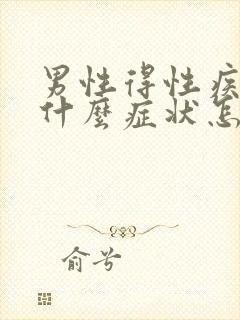 男性得性疾
什麼症状怎
俞兮